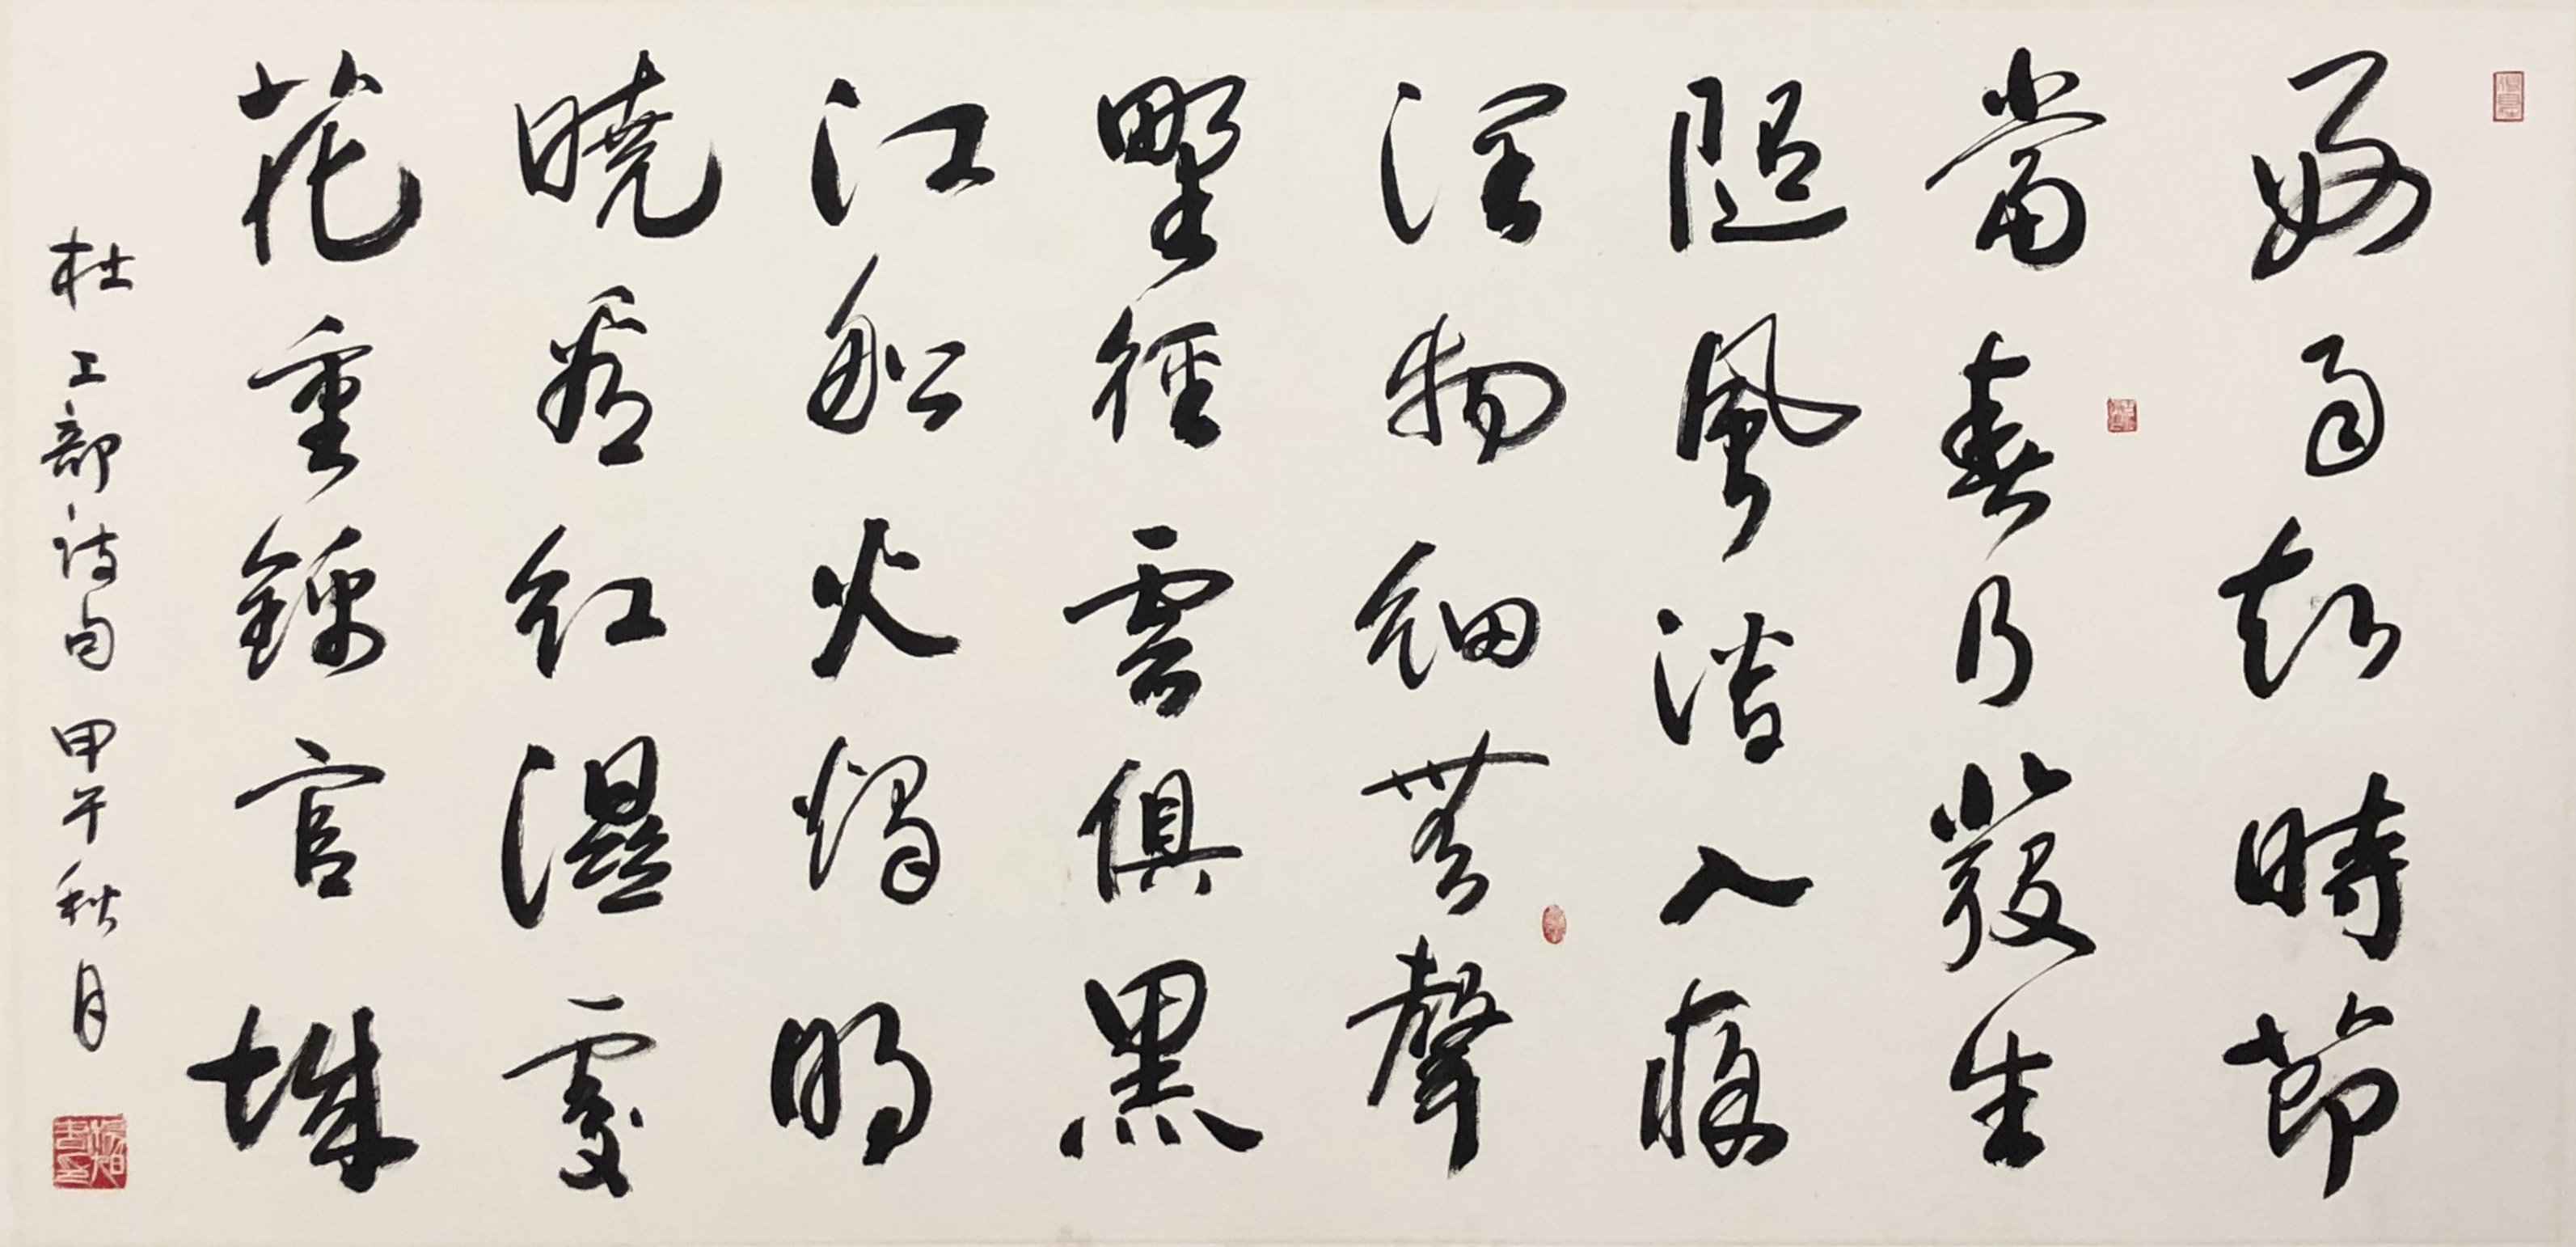 好雨知時節
當春乃發生
隨風潛入夜
潤物細無聲
野徑雲俱黑
江船火燭明
曉看紅濕處
花重錦官城
杜工部詩句甲午秋月